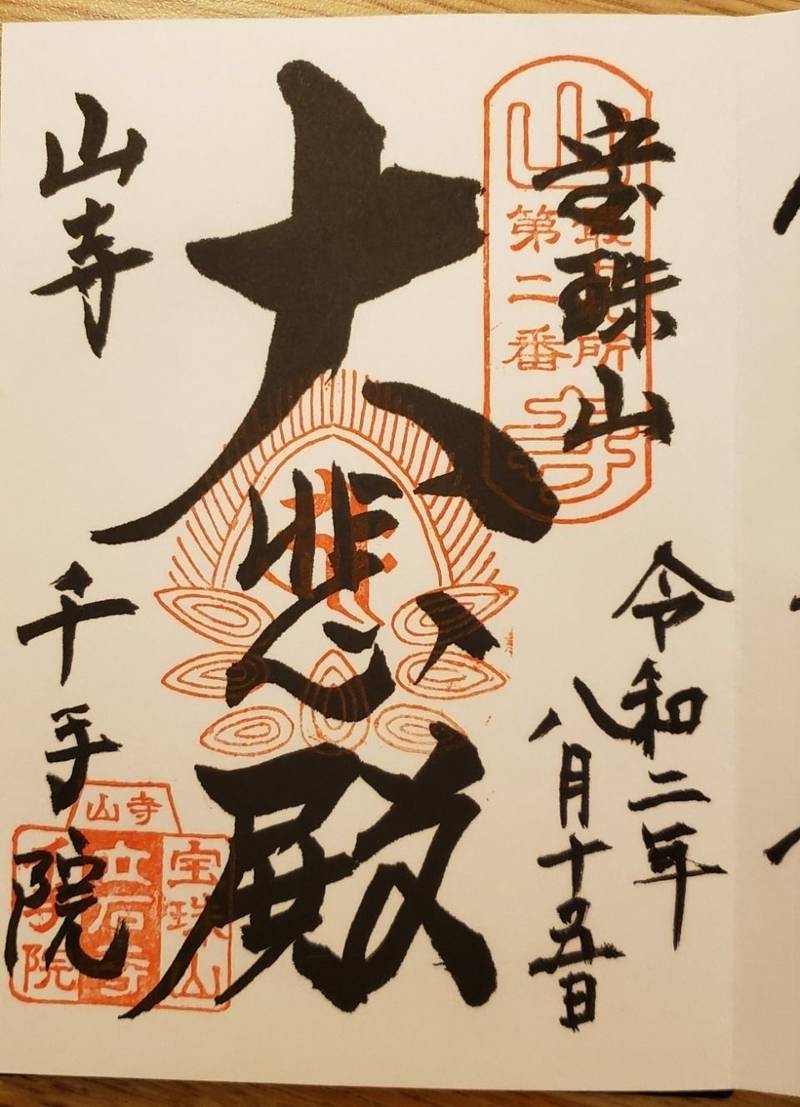 宝珠山
令和二年
八月十五日
大悲殿
山寺
千手院
山
第二番
所
寺
山寺
宝珠山
立石寺
千手院